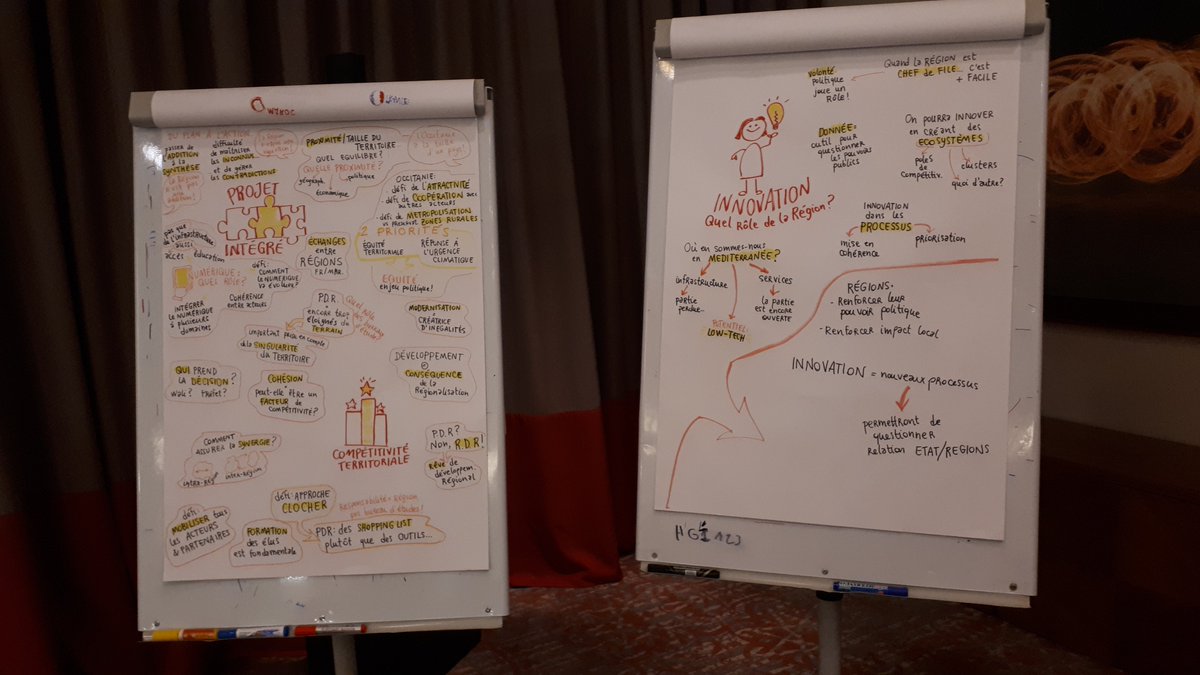 DU PLAN À L'ACTION
passer de
l'ADDITION
à la
SYNTHÈSE
difficulté
de maîtriser
les INCONNUS
et de gérer
les CONTRADICTIONS
PROXIMITÉ/TAILLE DU
TERRITOIRE
QUEL EQUILIBRE?
QUELLE PROXIMITÉ?
géograph.
économique
politique
PROJET
INTÉGRÉ
OCCITANIE:
- défi de l'ATTRACTIVITÉ
- défi de COOPÉRATION avec
autres acteurs
- défi de METROPOLISATION
vs préserver ZONES RURALES
2 PRIORITÉS
ÉQUITÉ
TERRITORIALE
RÉPONSE À
L'URGENCE
CLIMATIQUE
EQUITÉ
enjeu politique!
pas que
de l'infrastructure
aussi
accès éducation
ÉCHANGES
entre
RÉGIONS
FR/MAR.
NUMÉRIQUE:
QUEL RÔLE?
INTÉGRER
LE NUMÉRIQUE
à plusieurs
domaines
défi:
COMMENT
LE NUMÉRIQUE
va évoluer?
COHÉRENCE
entre acteurs
P.D.R.
encore trop
éloignés du
TERRAIN
important prise en compte
de la SINGULARITÉ
du TERRITOIRE
MODERNISATION
=
CRÉATRICE
D'INÉGALITÉS
QUI PREND
LA DÉCISION?
Wali?
COHÉSION
peut-elle être un
FACTEUR de
COMPÉTITIVITÉ?
DÉVELOPPEMENT
CONSÉQUENCE
de la
Régionalisation
COMPÉTITIVITÉ
TERRITORIALE
COMMENT
ASSURER la SYNERGIE?
intra-Rég
inter-Région
P.D.R?
Non, R.D.R!
RÊVE de
développem.
Régional
défi: APPROCHE
CLOCHER
Responsabilité = Région
pas bureau d'études!
défi:
MOBILISER tous
les ACTEURS
& PARTENAIRES
FORMATION
des élus
est fondamentale
PDR: des SHOPPING LIST
plutôt que des OUTILS...
volonté
politique
joue un
RÔLE!
Quand la RÉGION est
CHEF de FILE... c'est
+ FACILE
DONNÉE=
outil pour
questionner
les pouvoirs
publics
On pourra INNOVER
en créant des
ECOSYSTÈMES
pôles
de
compétitiv.
clusters
quoi d'autre?
INNOVATION
Quel Rôle de la Région?
INNOVATION
dans les
PROCESSUS
mise en
cohérence
priorisation
Où en sommes-nous
en MEDITERRANÉE?
infrastructure
services
partie
perdue...
la partie
est encore
ouverte
POTENTIEL
LOW-TECH
RÉGIONS:
- Renforcer leur
pouvoir politique
- Renforcer impact local
INNOVATION = nouveaux processus
permettront de
questionner
relation ETAT/REGIONS